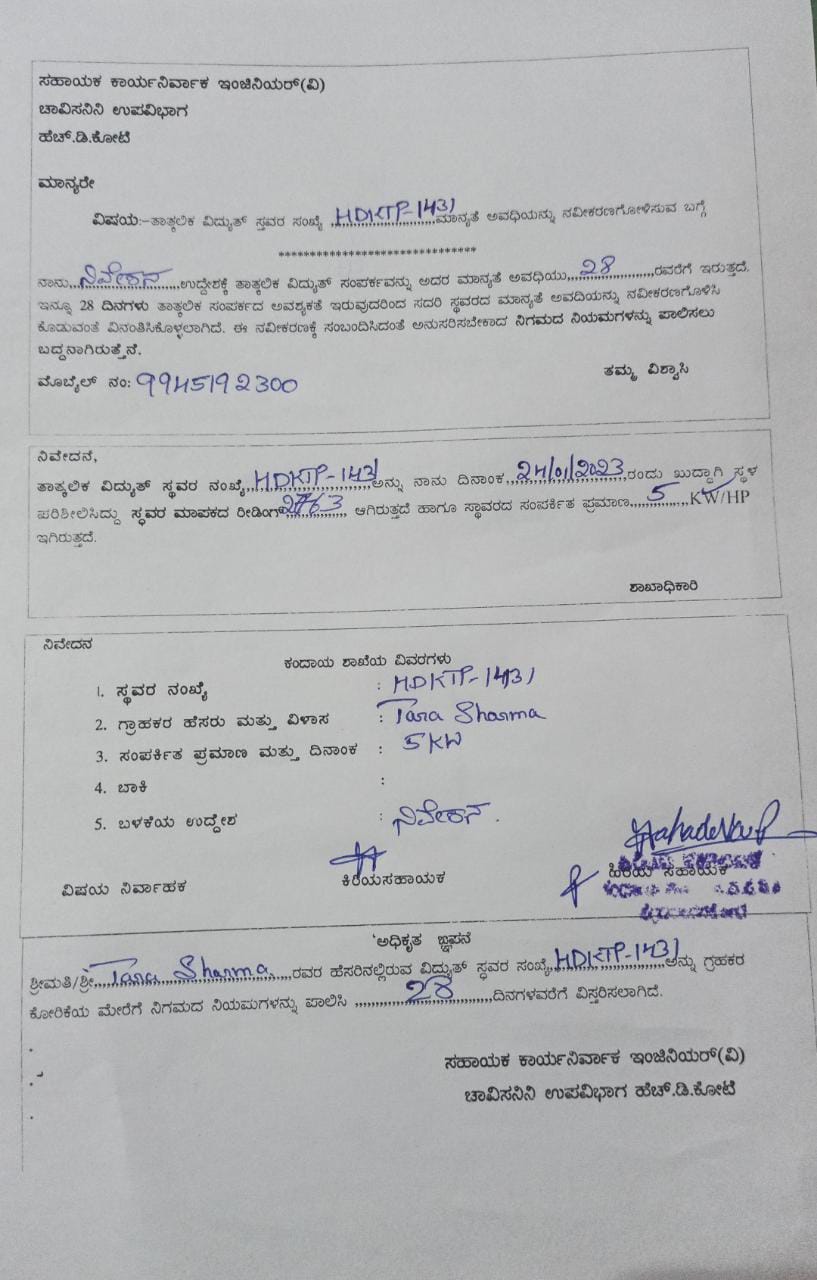 ಸಹಾಯಕ ಕಾರ್ಯನಿರ್ವಾಕ ಇಂಜಿನಿಯರ್(ವಿ)
ಚಾವಿಸನಿನಿ ಉಪವಿಭಾಗ
ಹೆಚ್.ಡಿ.ಕೋಟೆ
ಮಾನ್ಯರೇ
ವಿಷಯ:-ತಾತ್ಕಲಿಕ ವಿದ್ಯುತ್ ಸ್ತವರ ಸಂಖ್ಯೆ HDKTP-1431 ಮಾನ್ಯತೆ ಅವಧಿಯನ್ನು ನವೀಕರಣಗೋಳಿಸುವ ಬಗ್ಗೆ
*******************************
ನಾನು,,,ನಿವೇಶನ,,,,,,ಉದ್ದೇಶಕ್ಕೆ ತಾತ್ಕಲಿಕ ವಿದ್ಯುತ್ ಸಂಪರ್ಕವನ್ನು ಅದರ ಮಾನ್ಯತೆ ಅವಧಿಯು,,,28,,,,,,,ರವರೆಗೆ ಇರುತ್ತದೆ.
ಇನ್ನೂ 28 ದಿನಗಳು ತಾತ್ಕಲಿಕ ಸಂಪರ್ಕದ ಅವಶ್ಯಕತೆ ಇರುವುದರಿಂದ ಸದರಿ ಸ್ಥವರದ ಮಾನ್ಯತೆ ಅವದಿಯನ್ನು ನವೀಕರಣಗೊಳಿಸಿ
ಕೊಡುವಂತೆ ವಿನಂತಿಸಿಕೊಳ್ಳಲಾಗಿದೆ. ಈ ನವೀಕರಣಕ್ಕೆ ಸಂಬಂದಿಸಿದಂತೆ ಅನುಸರಿಸಬೇಕಾದ ನಿಗಮದ ನಿಯಮಗಳನ್ನು ಪಾಲಿಸಲು
ಬದ್ದನಾಗಿರುತ್ತೆನೆ.
ತಮ್ಮ ವಿಶ್ವಾಸಿ
ಮೊಬೈಲ್ ನಂ: 9945192300
ನಿವೇದನೆ,
ತಾತ್ಕಲಿಕ ವಿದ್ಯುತ್ ಸ್ಥವರ ನಂಖ್ಯೆ,,,HDKTP-1431,,,ಅನ್ನು ನಾನು ದಿನಾಂಕ,,,24/01/2023,,,ರಂದು ಖುದ್ದಾಗಿ ಸ್ಥಳ
ಪರಿಶೀಲಿಸಿದ್ದು ಸ್ಥವರ ಮಾಪಕದ ರೀಡಿಂಗ್ 2763,,, ಆಗಿರುತ್ತದೆ ಹಾಗೂ ಸ್ಥಾವರದ ಸಂಪರ್ಕಿತ ಪ್ರಮಾಣ,,,5,,,KW/HP
ಇಗಿರುತ್ತದೆ.
ಶಾಖಾಧಿಕಾರಿ
ನಿವೇದನ
ಕಂದಾಯ ಶಾಖೆಯ ವಿವರಗಳು
1. ಸ್ಥವರ ನಂಖ್ಯೆ : HDKTP-1431
2. ಗ್ರಾಹಕರ ಹೆಸರು ಮತ್ತು ವಿಳಾಸ : Tara Sharma
3. ಸಂಪರ್ಕಿತ ಪ್ರಮಾಣ ಮತ್ತು ದಿನಾಂಕ : 5 KW
4. ಬಾಕಿ :
5. ಬಳಕೆಯ ಉದ್ದೇಶ : ನಿವೇಶನ.
ವಿಷಯ ನಿರ್ವಾಹಕ ಕಿರಿಯಸಹಾಯಕ ಹಿರಿಯ ಸಹಾಯಕ
'ಅಧಿಕೃತ ಜ್ಞಾಪನೆ
ಶ್ರೀಮತಿ/ಶ್ರೀ,,,Tara Sharma,,,ರವರ ಹೆಸರಿನಲ್ಲಿರುವ ವಿದ್ಯುತ್ ಸ್ಥವರ ಸಂಖ್ಯೆ HDKTP-1431,,,ಅನ್ನು ಗ್ರಹಕರ
ಕೋರಿಕೆಯ ಮೇರೆಗೆ ನಿಗಮದ ನಿಯಮಗಳನ್ನು ಪಾಲಿಸಿ ,,,,,,28,,,,,,ದಿನಗಳವರೆಗೆ ವಿಸ್ತರಿಸಲಾಗಿದೆ.
ಸಹಾಯಕ ಕಾರ್ಯನಿರ್ವಾಕ ಇಂಜಿನಿಯರ್(ವಿ)
ಚಾವಿಸನಿನಿ ಉಪವಿಭಾಗ ಹೆಚ್.ಡಿ.ಕೋಟೆ